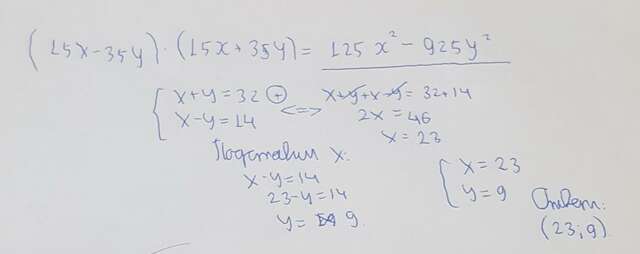 (15x-35y)·(15x+35y)= 125x²-925y²
{ x+y=32 (+) <=> x+y+x-y=32+14
x-y=14 2x=46
x=23
Подставим x:
x-y=14
23-y=14
y= 9
{ x=23
y=9
Ответ:
(23;9).